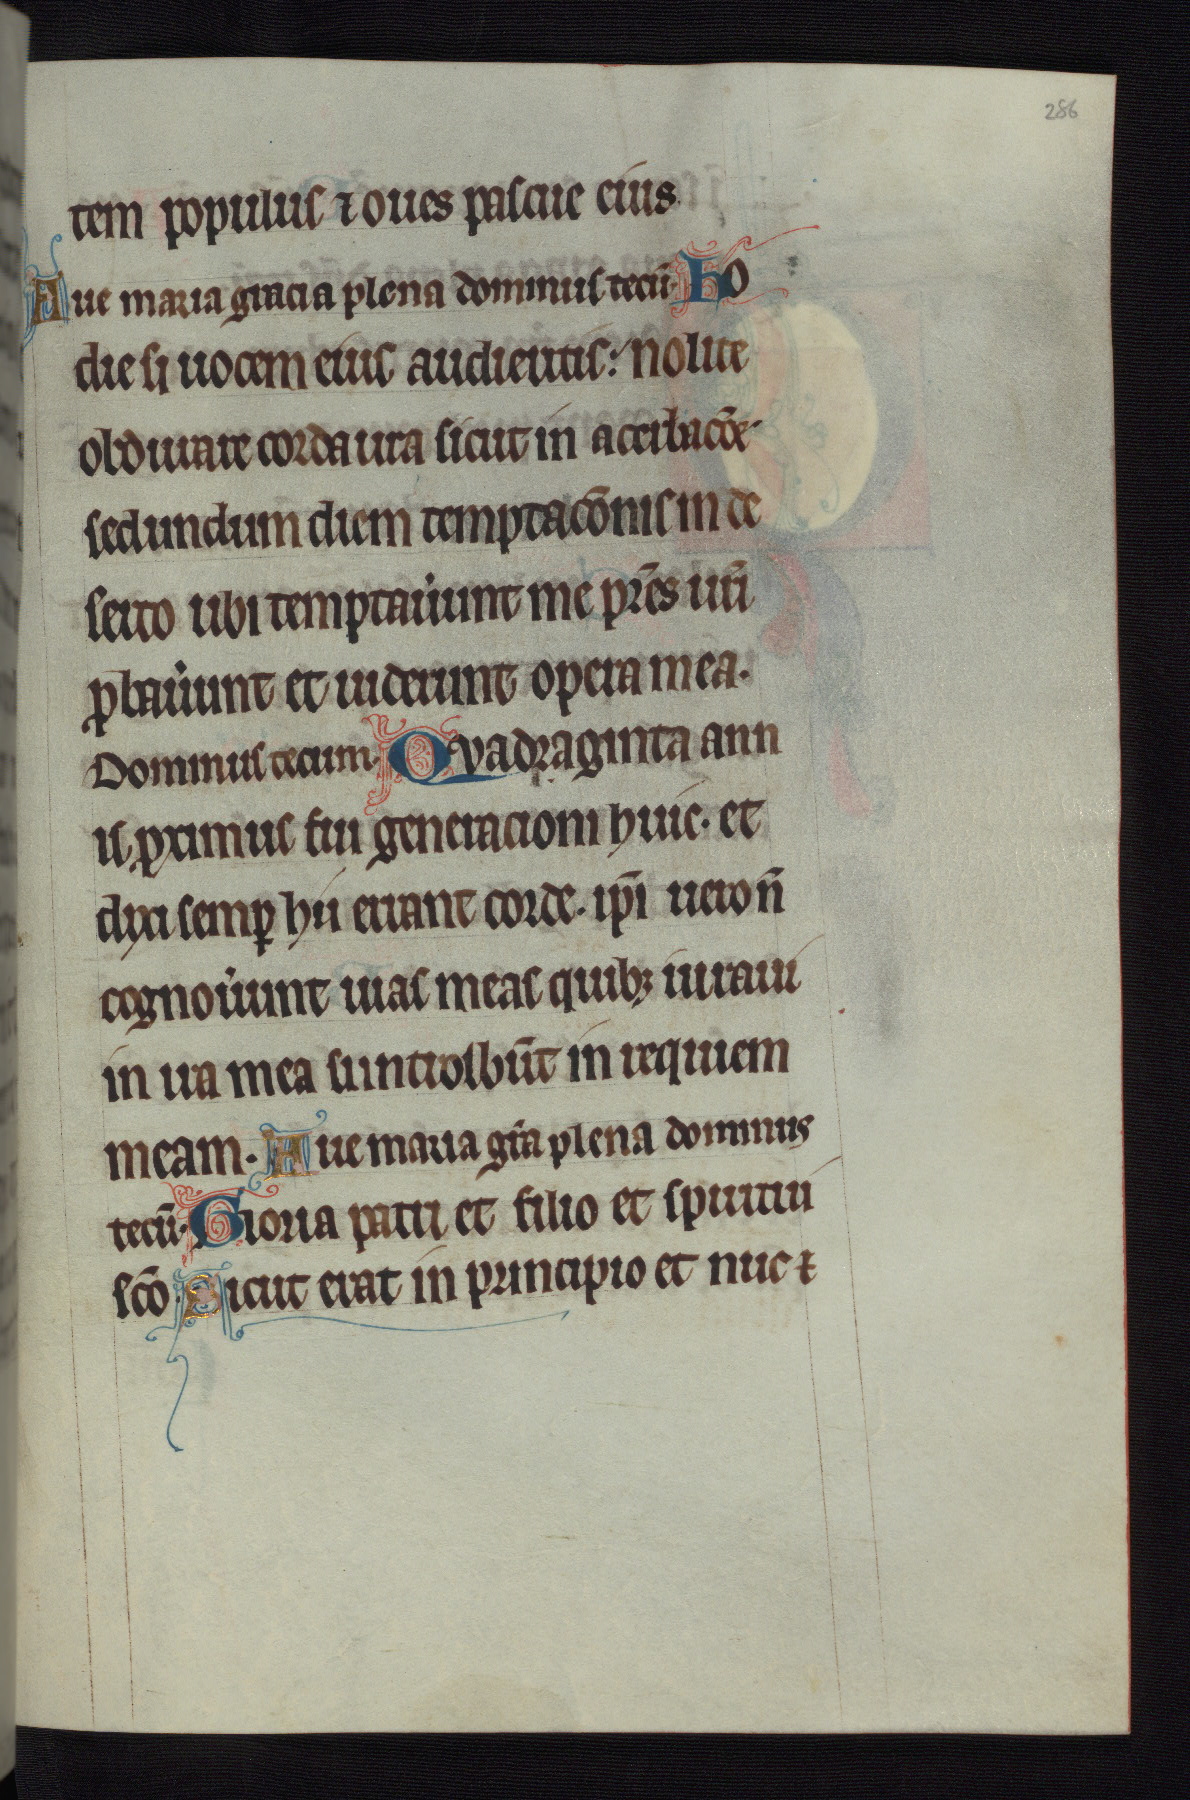 286
tem populus ⁊ oues pascue eius
Aue maria gracia plena dominus tecū. Ho
die si uocem eius audieritis: nolite
obdurare corda ura sicut in acerbacōe
sedundum diem temptacōnis in de
serto ubi temptauȷ̇unt me pr̄es ur̄i
ꝓbauȷ̇unt et uiderunt opera mea.
Dominus tecum. Quadraginta ann
is ꝓximus fui generacioni huic. et
dixi semꝑ hii errant corde. ip̄i uero n̄
cognouȷ̇unt uias meas quibꝫ iuraui
in ira mea si introibūt in requiem
meam. Aue maria gr̄a plena dominus
tecū. Gloria patri et filio et spiritui
scō. Sicut erat in principio et nuc ⁊